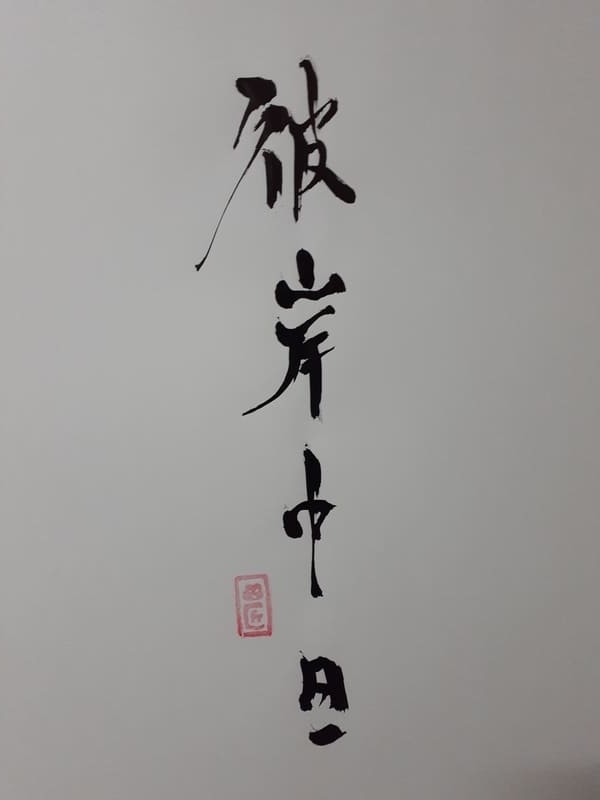 彼岸中日